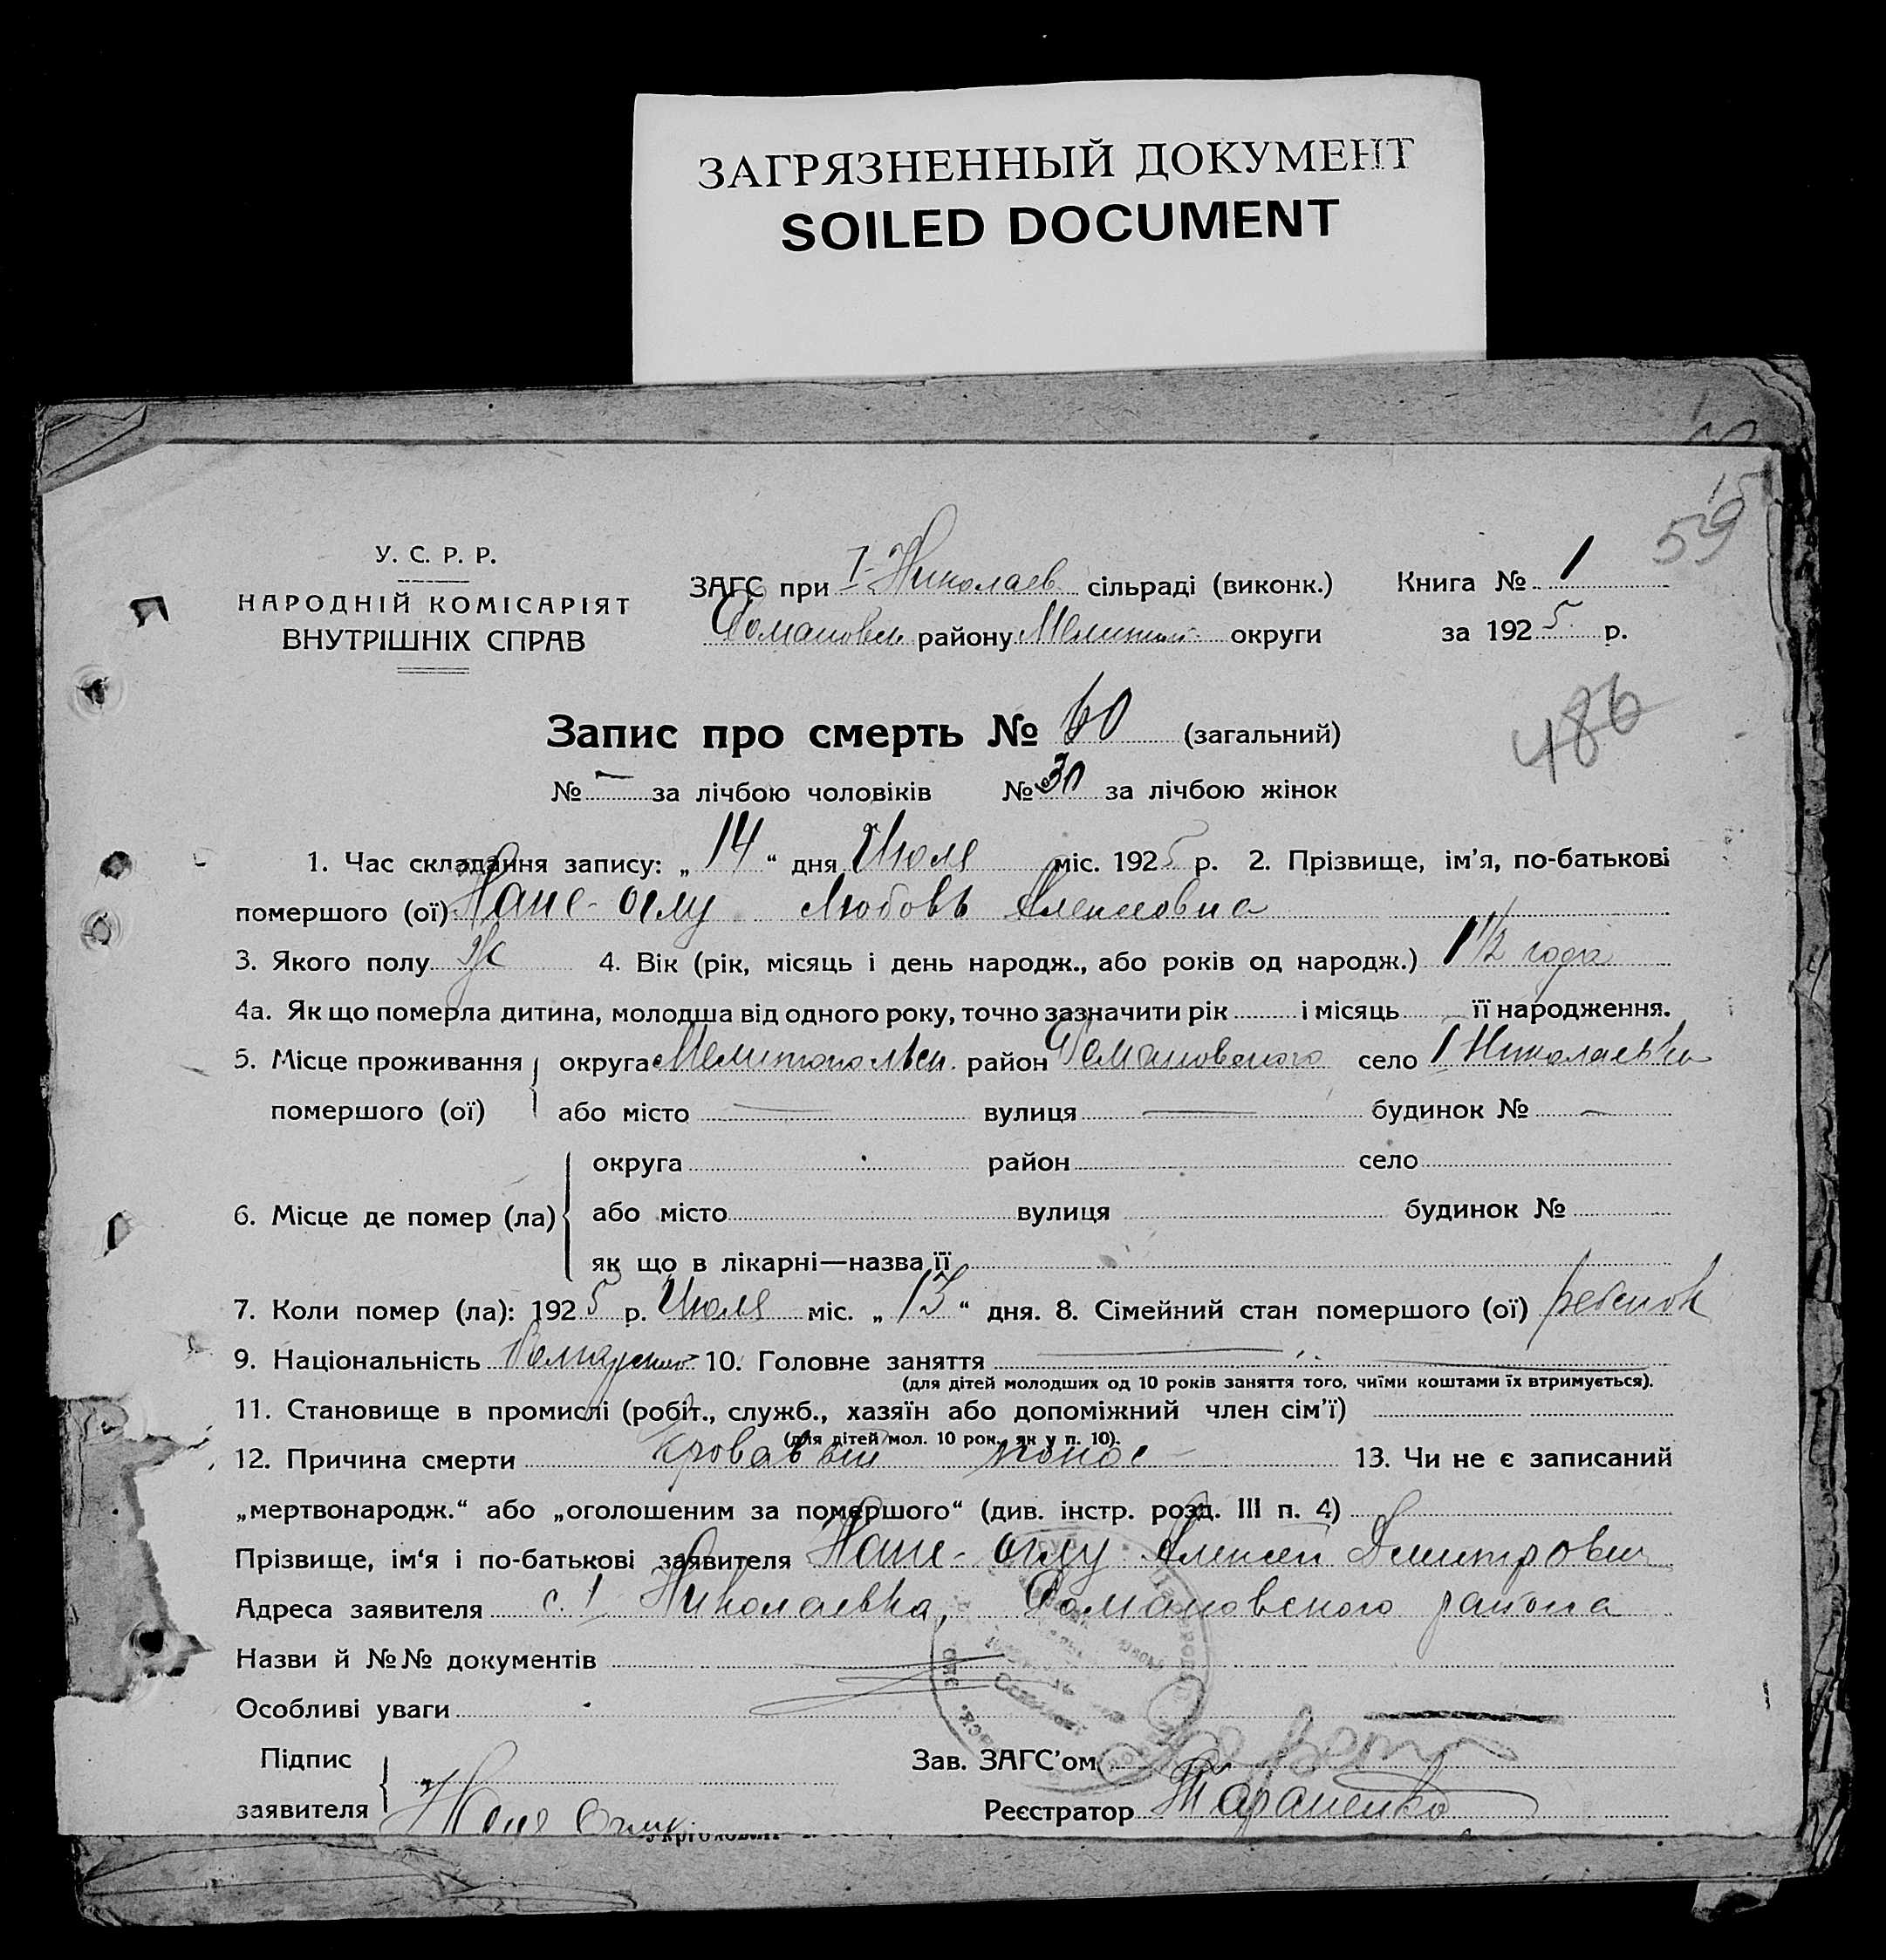 ЗАГРЯЗНЕННЫЙ ДОКУМЕНТ
SOILED DOCUMENT
59
У. С. Р. Р.
НАРОДНІЙ КОМІСАРІЯТ
ВНУТРІШНІХ СПРАВ
ЗАГС при I-Николаев. сільраді (виконк.) Книга № 1
району Мелитоп. округи за 1925 р.
Запис про смерть № 60 (загальний)
486
№ — за лічбою чоловіків № 30 за лічбою жінок
1. Час складання запису: „14“ дня Июля міс. 1925 р. 2. Прізвище, ім'я, по-батькові
помершого (ої) оглу Любовь Алексеевна
3. Якого полу ж 4. Вік (рік, місяць і день народж., або років од народж.) 1 1/2 года
4а. Як що померла дитина, молодша від одного року, точно зазначити рік і місяць її народження.
5. Місце проживання округа Мелитопольск. район село 1 Николаевка
помершого (ої) або місто — вулиця — будинок № —
округа район село
6. Місце де помер (ла) або місто вулиця будинок №
як що в лікарні—назва її
7. Коли помер (ла): 1925 р. Июля міс. „13“ дня. 8. Сімейний стан помершого (ої) ребенок
9. Національність 10. Головне заняття —
(для дітей молодших од 10 років заняття того, чиїми коштами їх втримується).
11. Становище в промислі (робіт., служб., хазяїн або допоміжний член сім'ї)
(для дітей мол. 10 рок., як у п. 10).
12. Причина смерти кровавый понос 13. Чи не є записаний
„мертвонародж.“ або „оголошеним за помершого“ (див. інстр. розд. III п. 4)
Прізвище, ім'я і по-батькові заявителя оглу Алексей Дмитрович
Адреса заявителя с. 1 Николаевка, района
Назви й №№ документів
Особливі уваги
Підпис Зав. ЗАГС'ом
заявителя Реєстратор Тараненко